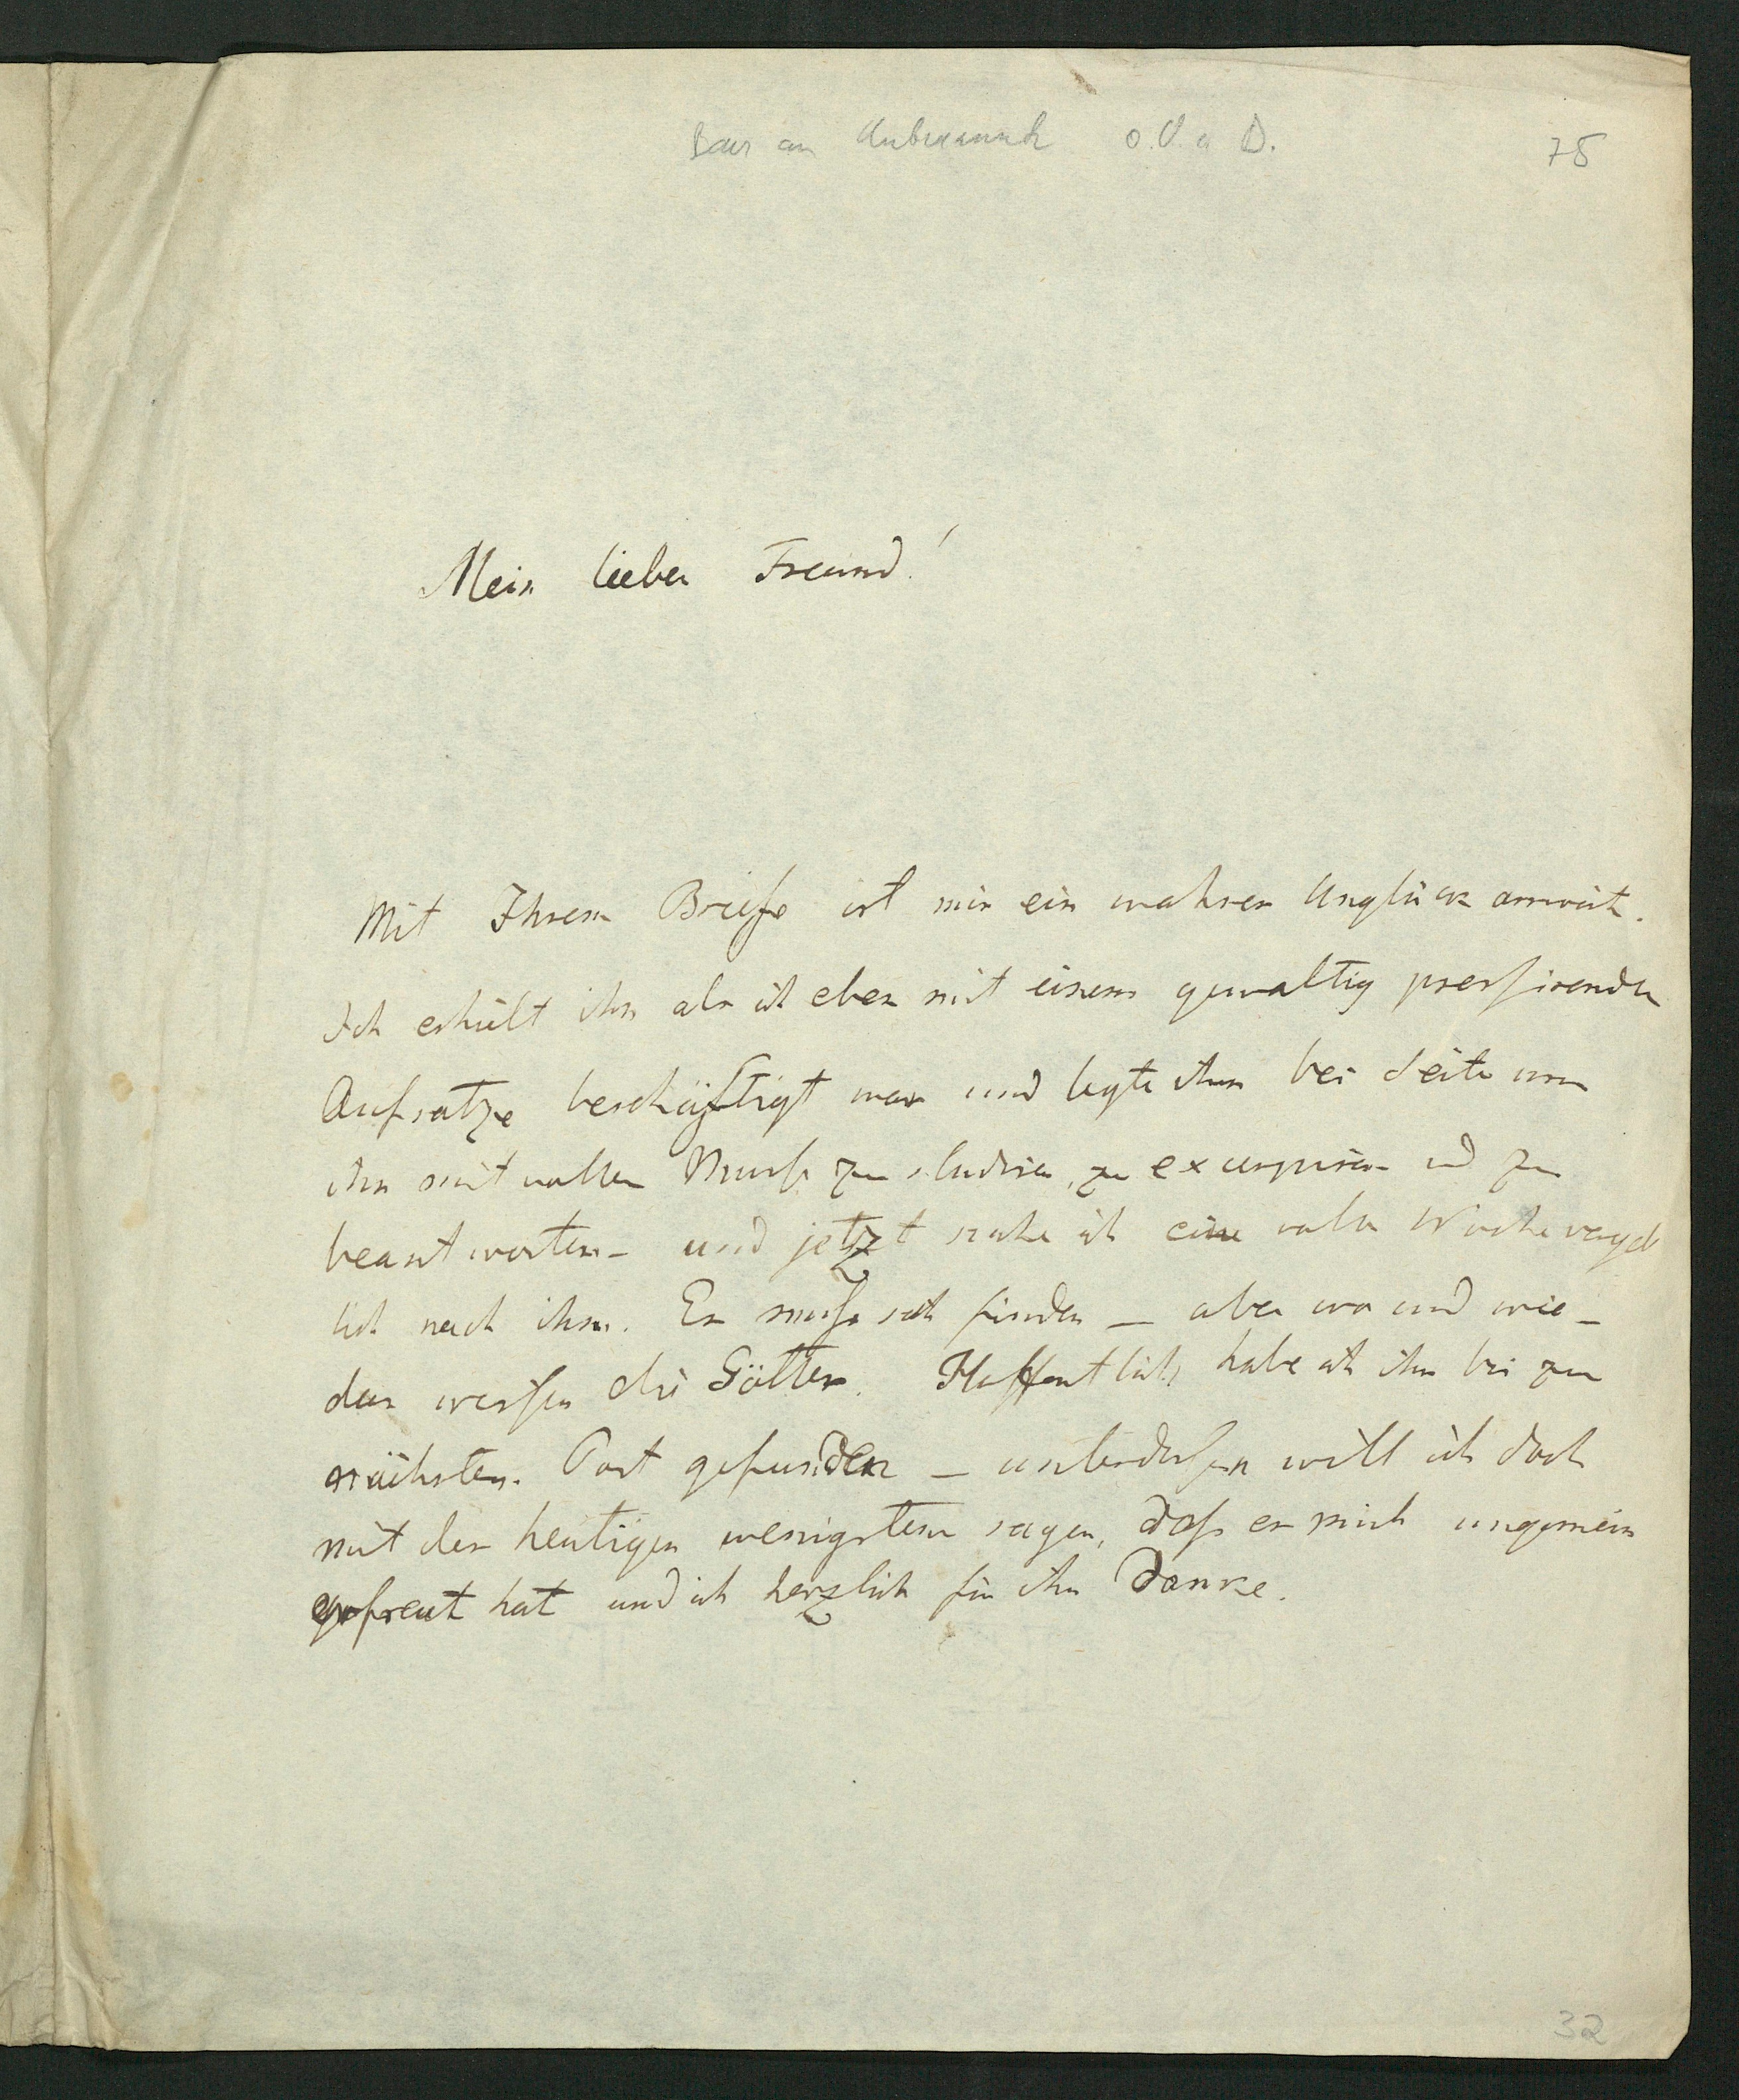 an Unbekannt o. O. u D. 75
Mein lieber Freund!
Mit Ihrem Briefe ist mir ein wahres Unglück arrivirt.
Ich erhielt ihn als ich eben mit einem gewaltig pressirenden
Aufsatze beschäftigt war und legte ihn bei Seite um
ihn mit voller Musse zu studiren, zu excerpiren und zu
beantworten – und jetzt suche ich eine volle Woche vergeb
lich nach ihm. Er muß sich finden – aber wo und wie –
das wissen die Götter. Hoffentlich habe ich ihn bis zur
nächsten Post gefunden – unterdessen will ich doch
mit der heutigen wenigstens sagen, daß er mich ungemein
gefreut hat und ich herzlich für ihn danke.
32